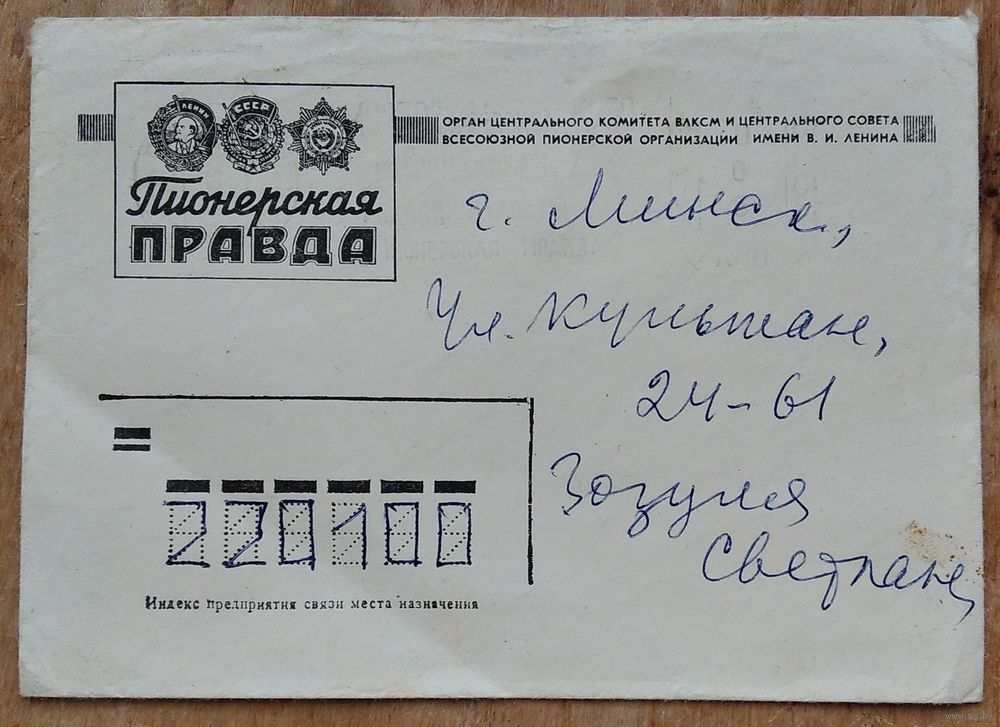 ЛЕНИН
СССР
Пионерская
ПРАВДА
ОРГАН ЦЕНТРАЛЬНОГО КОМИТЕТА ВЛКСМ И ЦЕНТРАЛЬНОГО СОВЕТА
ВСЕСОЮЗНОЙ ПИОНЕРСКОЙ ОРГАНИЗАЦИИ ИМЕНИ В. И. ЛЕНИНА
г. Минск,
Ул. Кульман,
24-61
Зозуля
Светлане
220100
Индекс предприятия связи места назначения
www.ay.by